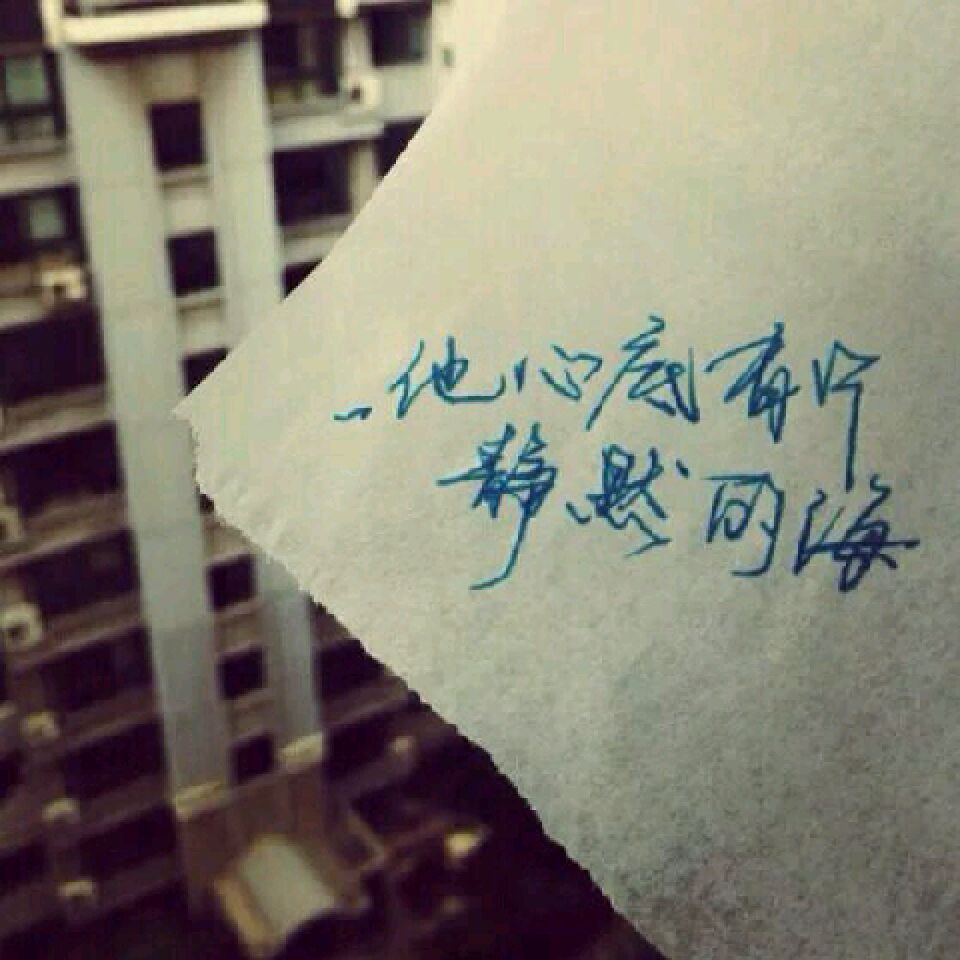 他心底有片
静默的海